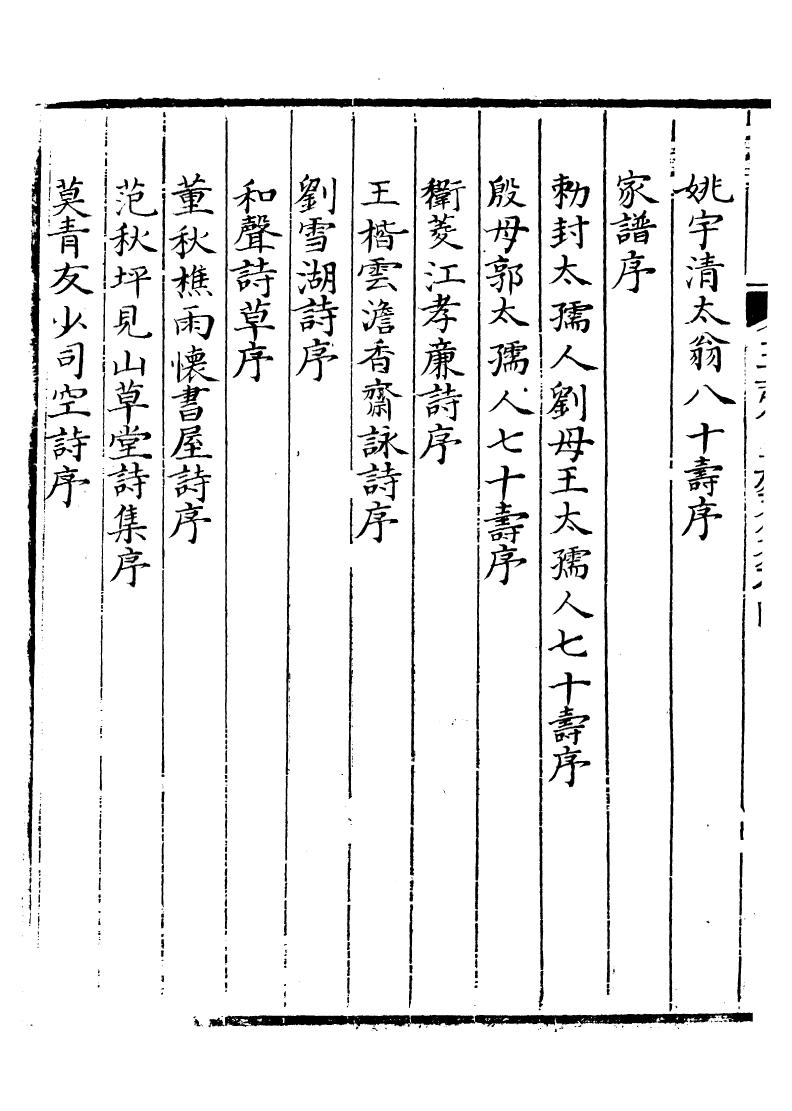 姚宇清太翁八十壽序
家譜序
勅封太孺人劉母王太孺人七十壽序
殷母郭太孺人七十壽序
衛菱江孝廉詩序
王楷雲澹香齋詠詩序
劉雪湖詩序
和聲詩草序
董秋樵雨懷書屋詩序
范秋坪見山草堂詩集序
莫青友少司空詩序